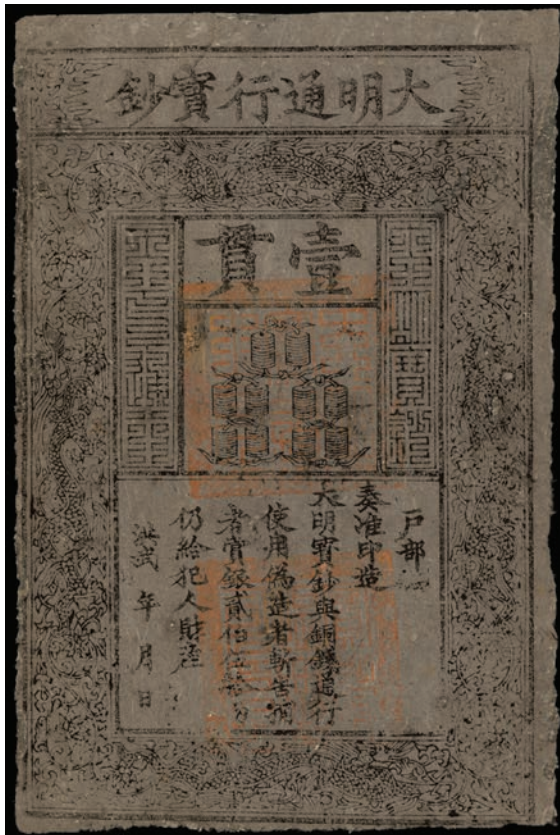 大明通行寳鈔
壹貫
大明寳鈔
天下通行
户部
奏准印造
大明寳鈔與銅錢通行
使用偽造者斬告捕
者賞銀貳伯伍拾兩
仍給犯人財産
洪武 年 月 日